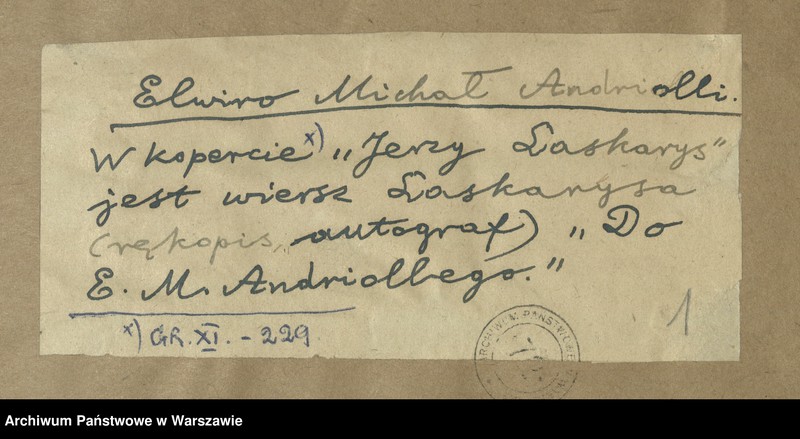 Elwiro Michał Andriolli.
W kopercie x) „Jerzy Laskarys”
jest wiersz Laskarysa
(rękopis, autograf) „Do
E. M. Andriollego.”
x) GR. XI. - 229
1
ARCHIWUM PAŃSTWOWE
Archiwum Państwowe w Warszawie